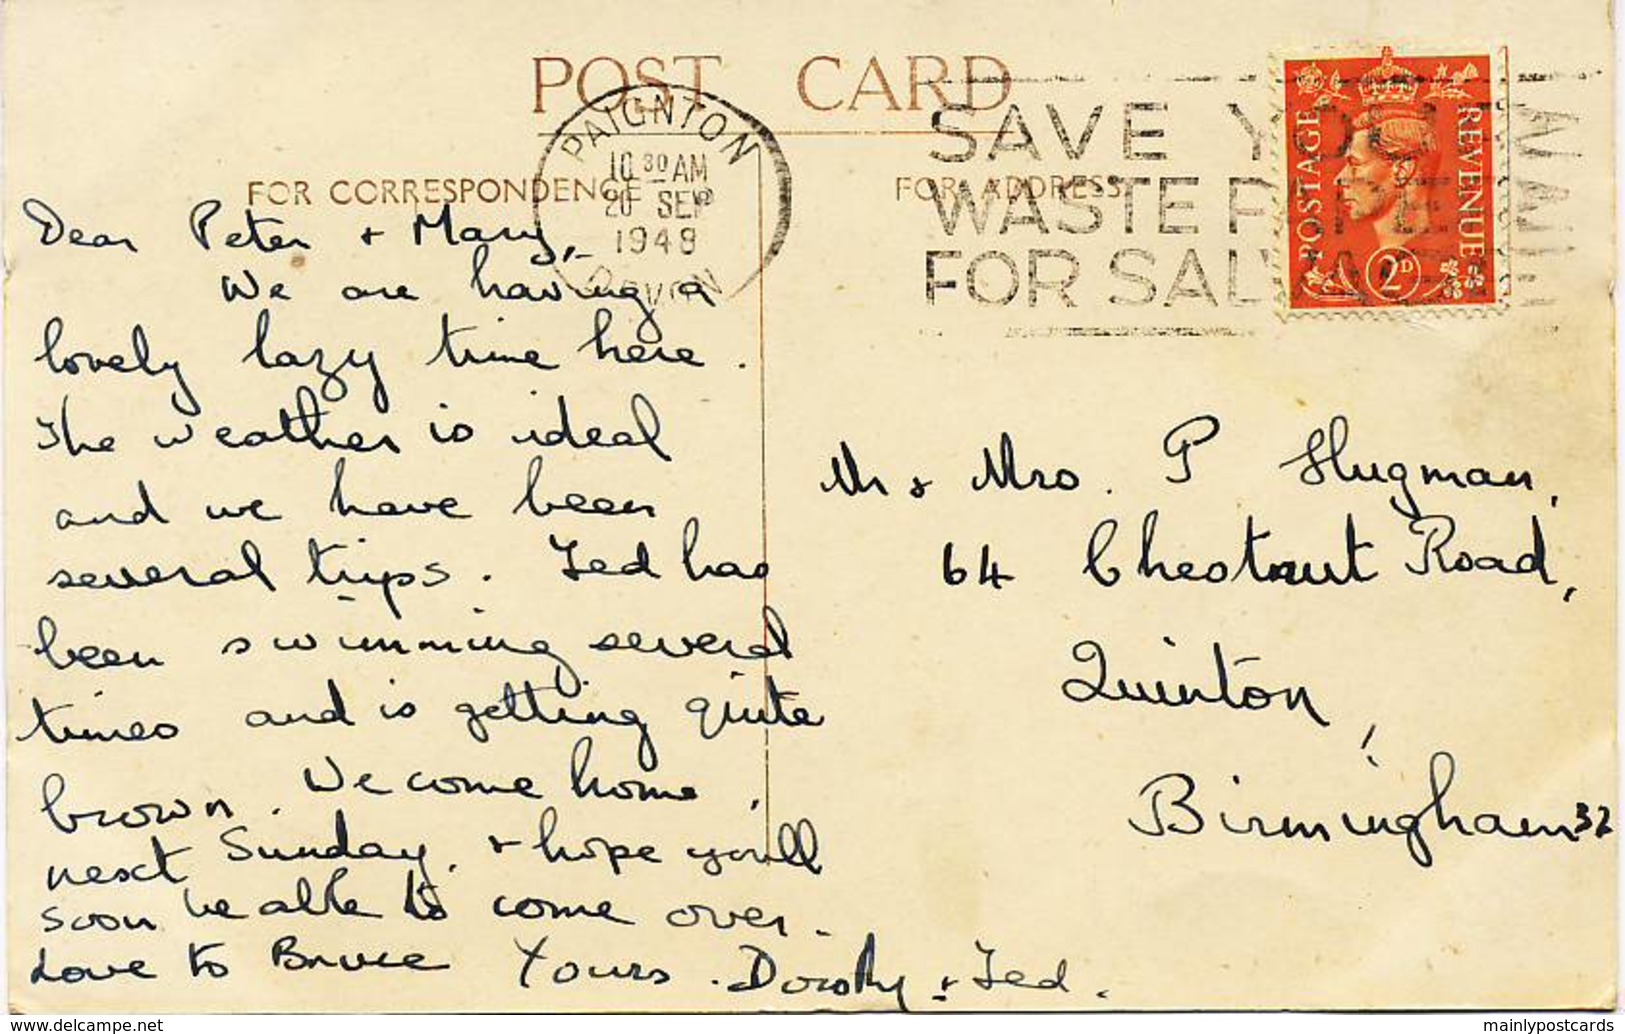 POST CARD
FOR CORRESPONDENCE
FOR ADDRESS
PAIGNTON
10 30 AM
20 SEP
1948
DEVON
SAVE YOUR
WASTE PAPER
FOR SALVAGE
POSTAGE
REVENUE
2D
Dear Peter + Mary,
We are having a
lovely lazy time here.
The weather is ideal
and we have been
several trips. Ted has
been swimming several
times and is getting quite
brown. We come home
next Sunday. + hope you'll
soon be able to come over.
Love to Bruce Yours. Dorothy + Ted.
Mr & Mrs. P Hugman,
64 Chestnut Road,
Quinton,
Birmingham 32
www.delcampe.net
mainlypostcards